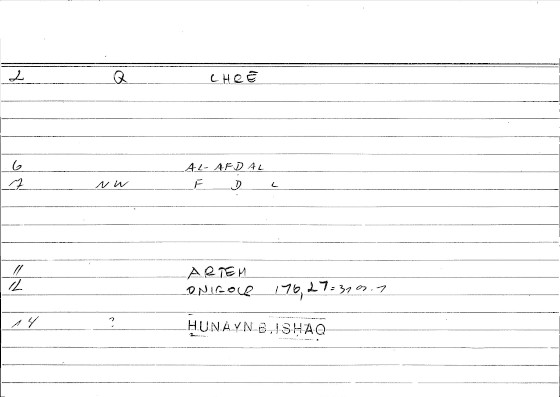 2 Q CHRĒ
6 AL-AFḌAL
7 NW F Ḍ L
11 ARTEM
12 ONIROCR 176,27
14 ? HUNAYN B. ISHAQ